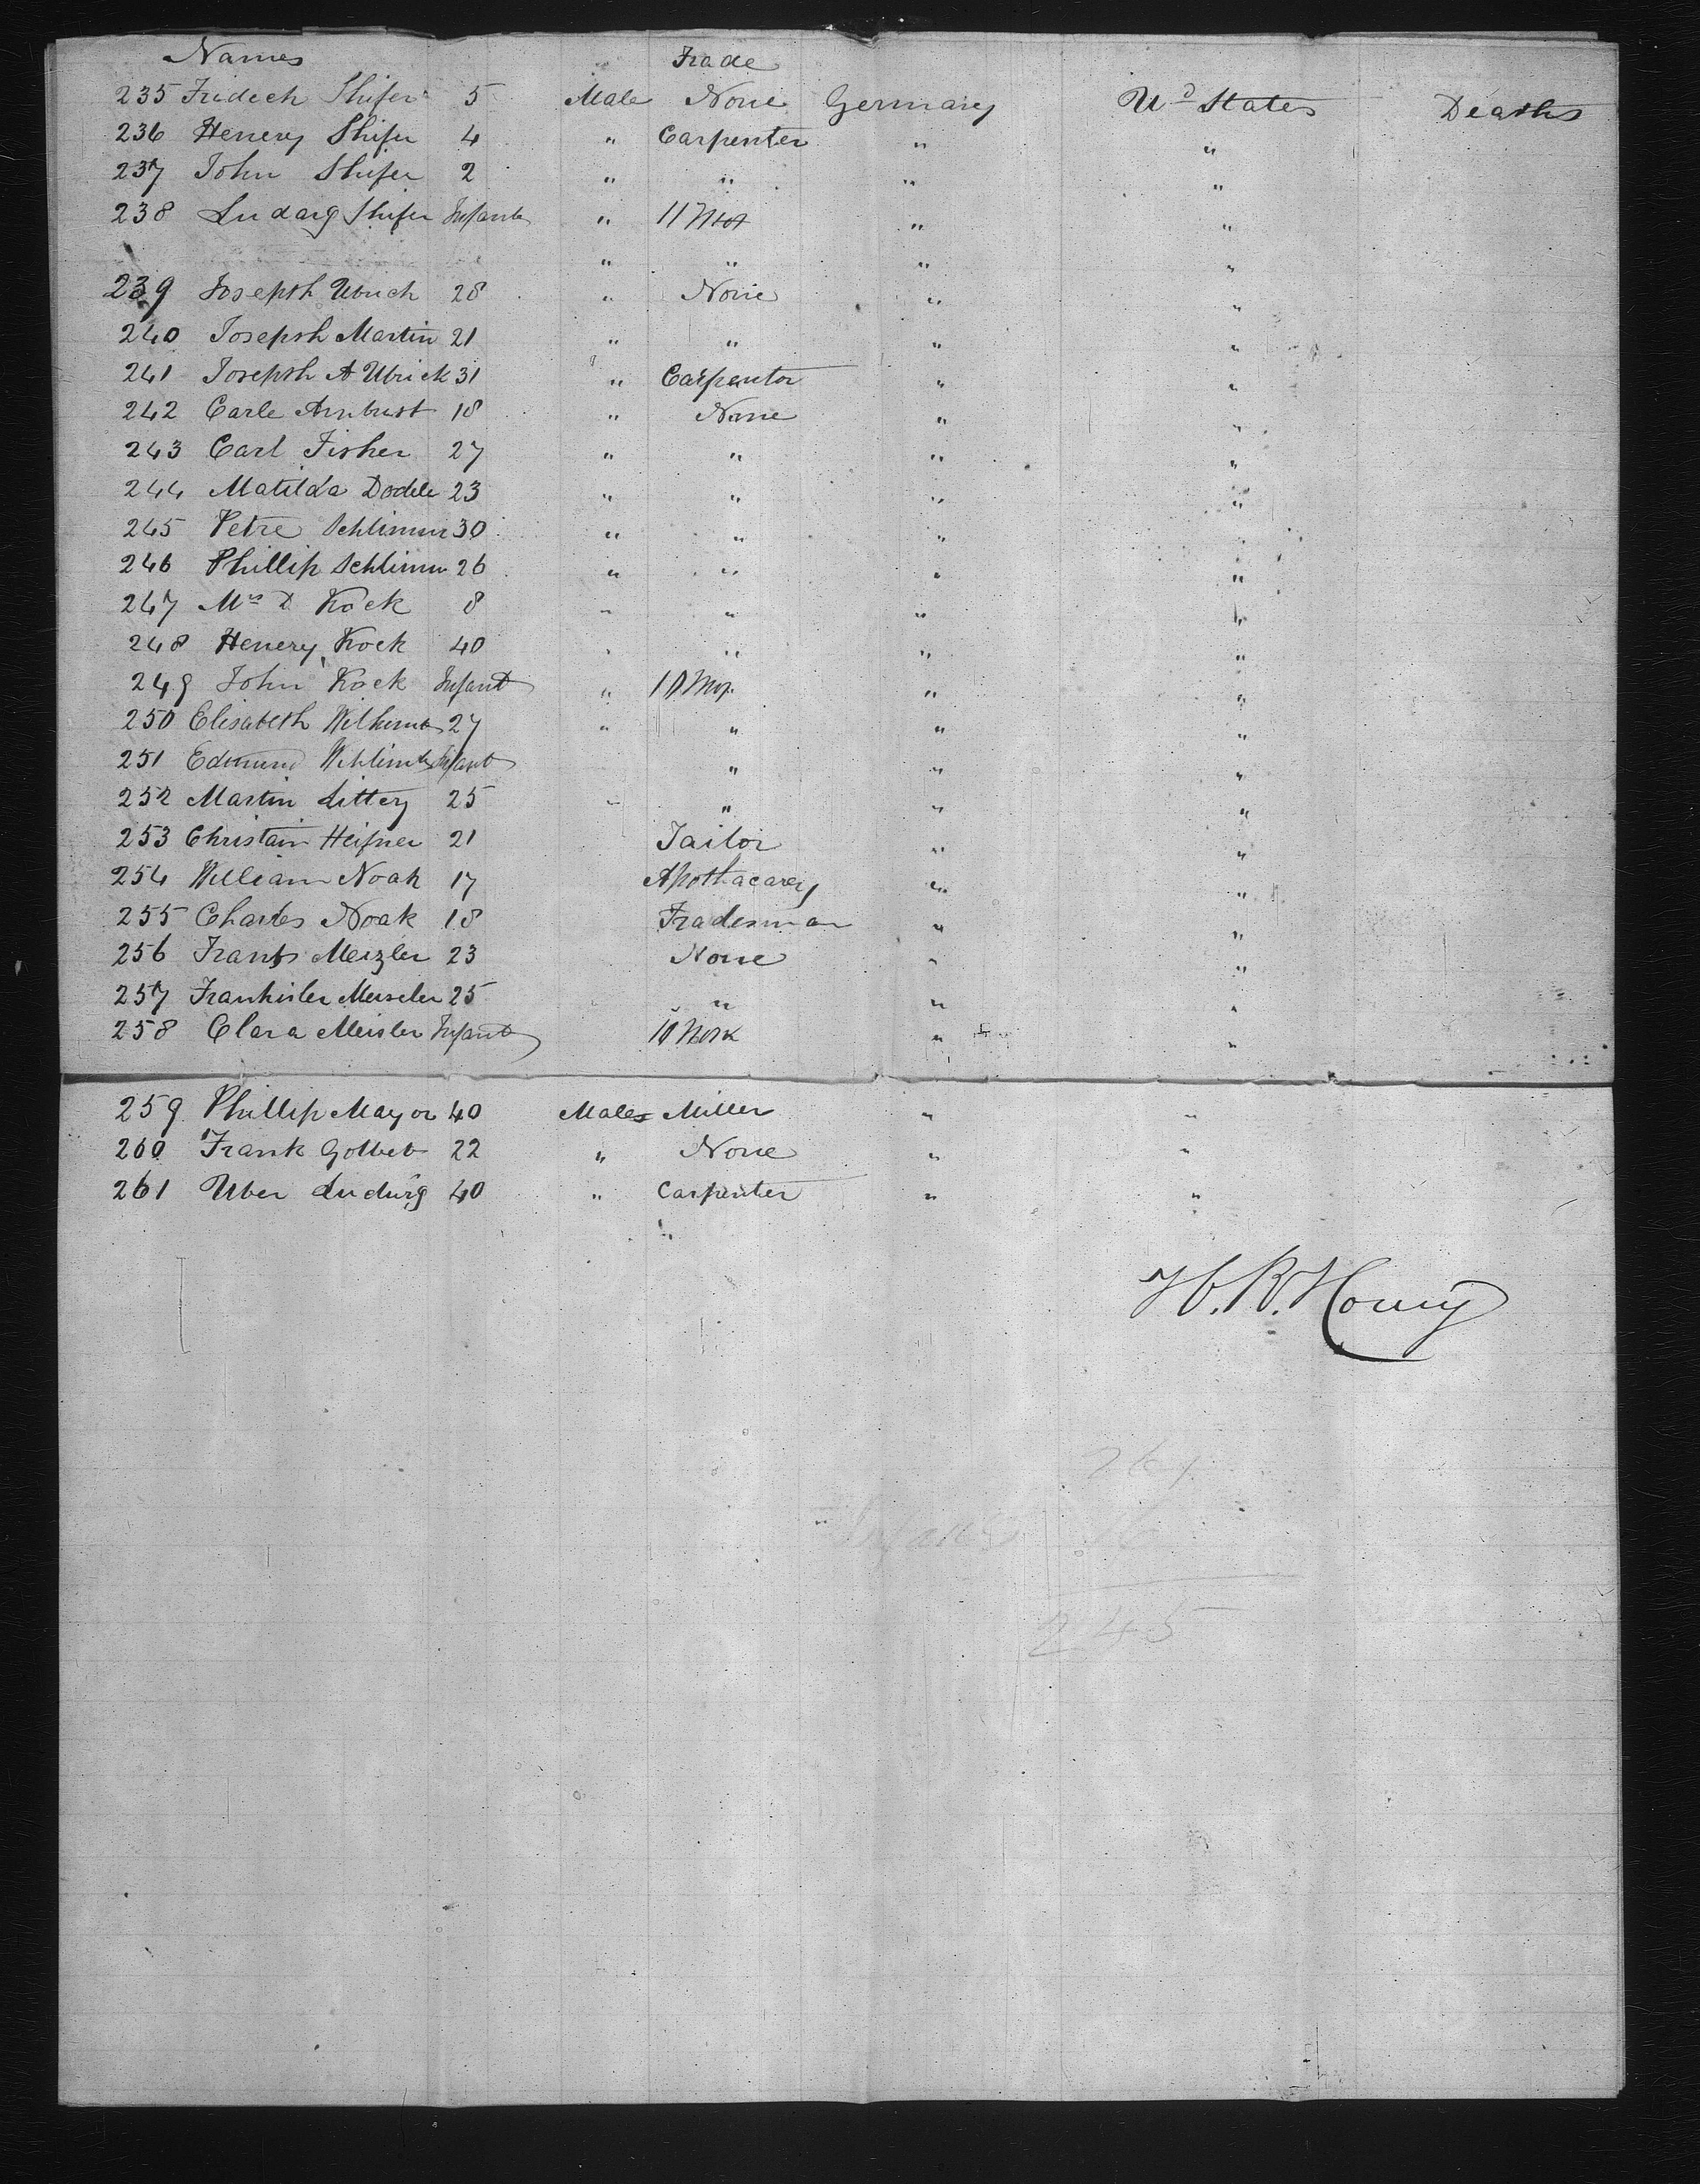 Names Trade
235 Fridech Shifer 5 Male None Germany Ud States Deaths
236 Henery Shifer 4 " Carpenter " "
237 John Shifer 2 " " " "
238 Ludarg Shifer Infant " 11 Mos " "
" " " "
239 Joseph Ulrich 28 " None " "
240 Joseph Martin 21 " " " "
241 Joseph A Ulrick 31 " Carpentor " "
242 Carle Ambust 18 " None " "
243 Carl Fisher 27 " " " "
244 Matilda Dodele 23 " " " "
245 Petre Schlimm 30 " " " "
246 Phillip Schlimm 26 " " " "
247 Mrs D Kock 8 " " " "
248 Henery Kock 40 " " " "
249 John Kock Infant " 10 Mos " "
250 Elisabeth 27 " " " "
251 Edmund Infant " " "
252 Martin Litterj 25 " " " "
253 Christain Heifner 21 Tailor " "
254 William Noak 17 Apothacarey " "
255 Charles Noak 18 Tradesman " "
256 Frants Meizler 23 None " "
257 Meiseler 25 " " "
258 Clara Meisler Infant 10 " "
259 Phillip Mayor 40 Males Miller " "
260 Frank Golbet 22 " None " "
261 Uber Ludwig 40 " Carpenter " "
"
261
Infants 16
245